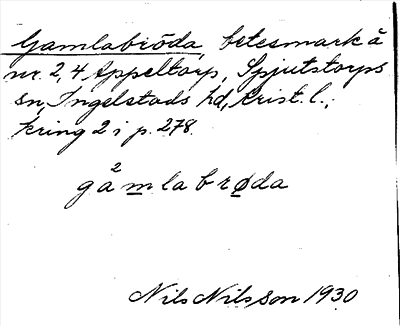 Gamlabröda, betesmark å
nr. 2, 4 Äppeltorp, Spjutstorps
sn, Ingelstads hd, Krist. l.;
kring 2 i p. 278.
gå²mlabrøda
Nils Nilsson 1930